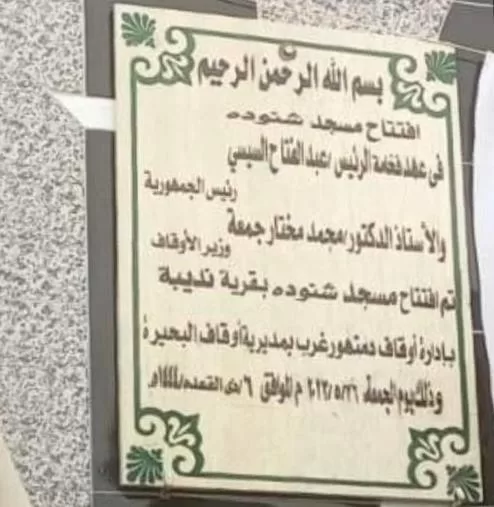 بسم الله الرحمن الرحيم
افتتاح مسجد شنوده
فى عهد فخامة الرئيس /عبدالفتاح السيسي
رئيس الجمهورية
والأستاذ الدكتور/محمد مختار جمعة
وزير الأوقاف
تم افتتاح مسجد شنوده بقرية نديبة
بإدارة أوقاف دمنهور غرب بمديرية أوقاف البحيرة
وذلك يوم الجمعة ٢٠٢٣/٥/٢٦ م الموافق ٦/ذى القعده/١٤٤٤هـ